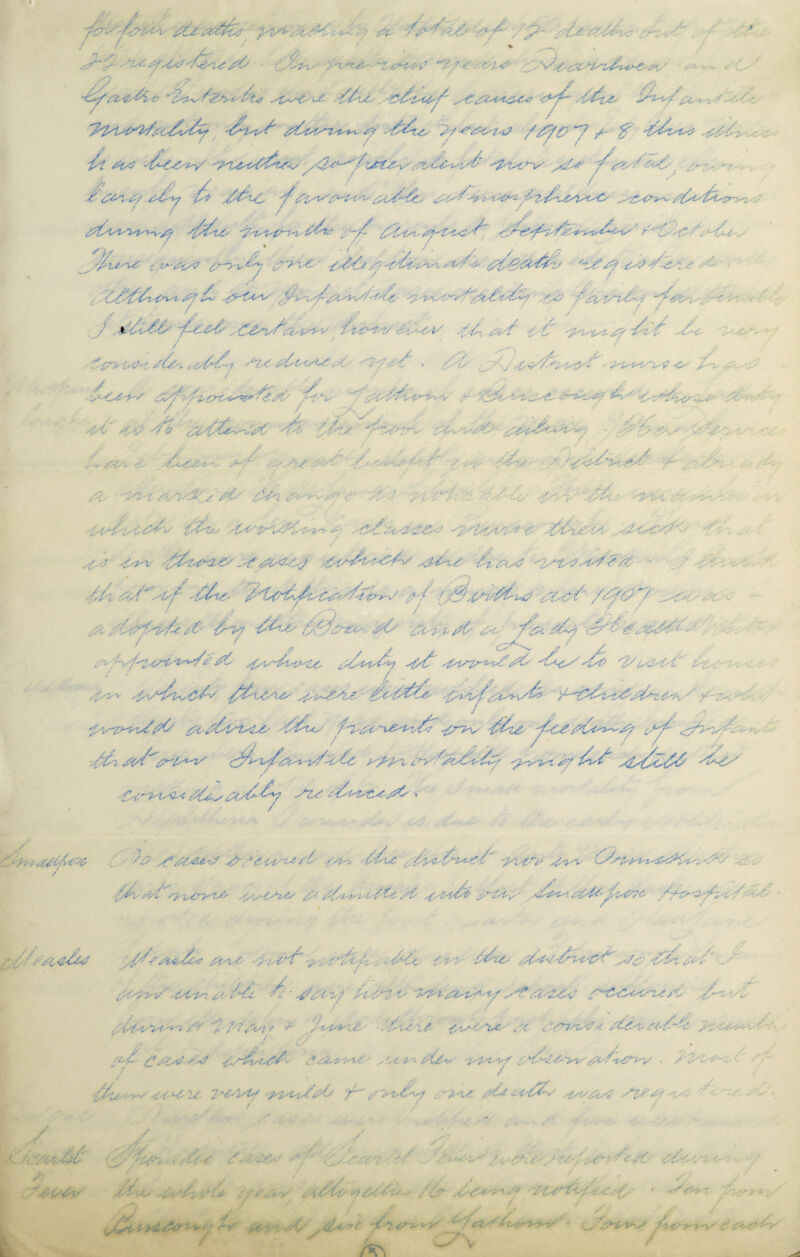 for four deaths, making a total of 15 deaths out of the
registered. In previous years Diarrhoea and
Gastro Enteritis were the chief causes of the Infantile
Mortality, but during the years 1907 + 8 this illness
has been neither so prevalent nor so fatal, owing
largely to the favourable atmospheric conditions
during the months of August, September + October
There was only one illegitimate death registered
Although our Infantile mortality is fairly favourable
I still feel certain, however, that it might be very
considerably reduced yet. A District nurse has
been appointed for Lathom + Burscough whose duty
it is to attend to the poor and ailing. Her Services
have been of great benefit in the District + already
a marked change is noticeable in the manner in
which the working classes nurse their sick, that
is in those cases which she has visited. I think
that if the Notification of Births act 1907 was
adopted by the Board and a Lady Health Visitor
appointed whose duty it would be to visit houses
in which there were little infants + children + who
would advise the parents on the feeding of Infants
that our Infantile mortality might still be
considerably reduced.
Smallpox No cases occurred in the district nor in Ormskirk so
that none were admitted into our Smallpox Hospital.
Measles Measles are not notifiable in the district so that I
am unable to say how many cases occurred but
during May + June there were a considerable number
of cases which came under my observation. Most of
them were very mild + only one death was registered.
Scarlet Sporadic cases of Scarlet Fever were reported during
Fever the whole year, altogether 16 being notified. Ten from
Burscough and six from Lathom. Four from each